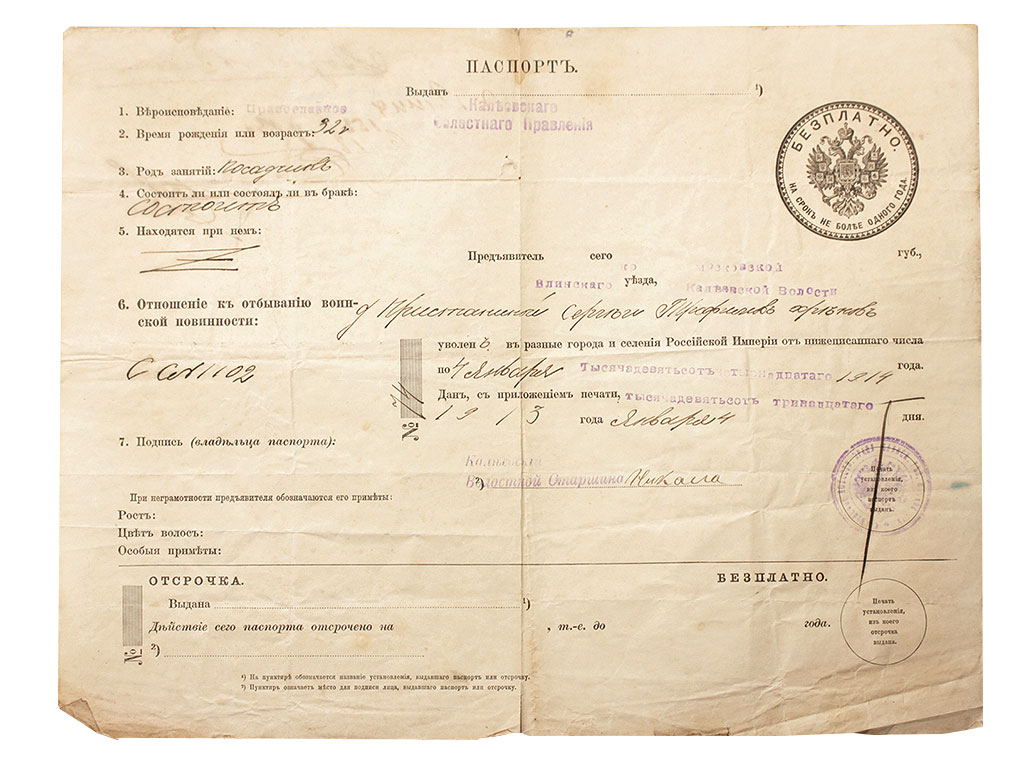 ПАСПОРТЪ.
Выданъ ¹)
1. Вѣроисповѣданіе: Православное
Калѣевскаго
Волостнаго Правленія
2. Время рожденія или возрастъ: 32 г
БЕЗПЛАТНО.
НА СРОКЪ НЕ БОЛѢЕ ОДНОГО ГОДА.
3. Родъ занятій:
4. Состоитъ ли или состоялъ ли въ бракѣ:
Состоитъ
5. Находятся при немъ:
Предъявитель сего Московской губ.,
уѣзда, Калѣевской Волости
6. Отношеніе къ отбыванію воин-
ской повинности:
д Сергѣй Трофимовъ
уволенъ въ разные города и селенія Россійской Имперіи отъ нижеписаннаго числа
по 4 Января Тысячадевятьсотъ четырнадцатаго 1914 года.
1102
Данъ, съ приложеніемъ печати, тысячадевятьсотъ тринадцатаго
№ 1913 года Января 4 дня.
7. Подпись (владѣльца паспорта):
Калѣевскій
²) Волостной Старшина
Печать
установленія,
изъ коего
паспортъ
выданъ.
При неграмотности предъявителя обозначаются его примѣты:
Ростъ:
Цвѣтъ волосъ:
Особыя примѣты:
ОТСРОЧКА.
БЕЗПЛАТНО.
Выдана ¹)
Дѣйствіе сего паспорта отсрочено на , т.-е. до года.
№ ²)
Печать
установленія,
изъ коего
отсрочка
выдана.
¹) На пунктирѣ обозначается названіе установленія, выдавшаго паспортъ или отсрочку.
²) Пунктиръ означаетъ мѣсто для подписи лица, выдавшаго паспортъ или отсрочку.